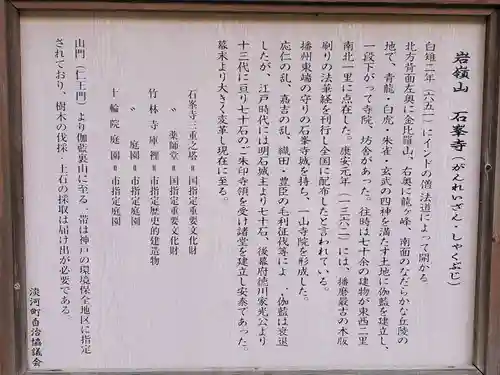 岩嶺山　石峯寺（がんれいざん・しゃくぶじ）
白雉二年（六五一）にインドの僧 法道によって開かる。
北方背面左奥に金比羅山、右奥に龍ヶ峰、南面のなだらかな丘陵の
地で、青龍・白虎・朱雀・玄武の四神を満たす土地に伽藍を建立し、
一段下がって寺院、坊舎があった。往時は七十余の建物が東西二里
南北一里に点在した。康安元年（一三六二）には、播磨最古の木版
刷りの法華経を刊行し全国に配布したと言われている。
播州東端の守りの石峯寺城を持ち、一山寺院を形成した。
応仁の乱、嘉吉の乱、織田・豊臣の毛利征伐等によ　、伽藍は衰退
したが、江戸時代には明石城主より七十石、後幕府徳川家光公より
十三代に亘り七十石のご朱印寺領を受け諸堂を建立し安泰であった。
幕末より大きく変革し現在に至る。
石峯寺三重之塔＝国指定重要文化財
〃　薬師堂＝国指定重要文化財
竹林寺庫裡＝市指定歴史的建造物
〃　庭園＝市指定庭園
十輪院庭園＝市指定庭園
山門（仁王門）より伽藍裏山に至る一帯は神戸の環境保全地区に指定
されており、樹木の伐採・土石の採取は届け出が必要である。
淡河町自治協議会